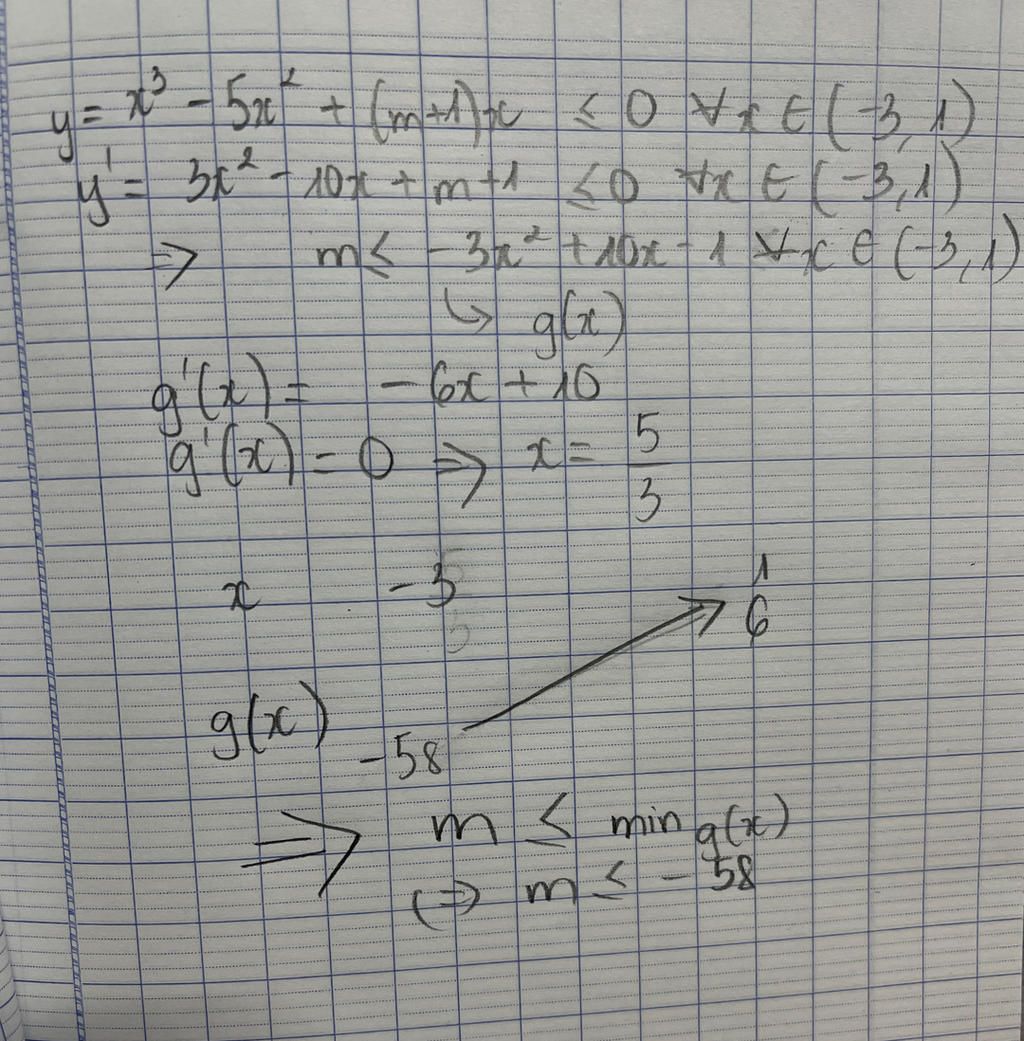 y = x³ - 5x² + (m+1)x ≤ 0 ∀x ∈ (-3, 1)
y' = 3x² - 10x + m + 1 ≤ 0 ∀x ∈ (-3, 1)
⇒ m ≤ -3x² + 10x - 1 ∀x ∈ (-3, 1)
↳ g(x)
g'(x) = -6x + 10
g'(x) = 0 ⇒ x = 5/3
x -3 1
6
g(x)
-58
⇒ m ≤ min g(x)
⇔ m ≤ -58